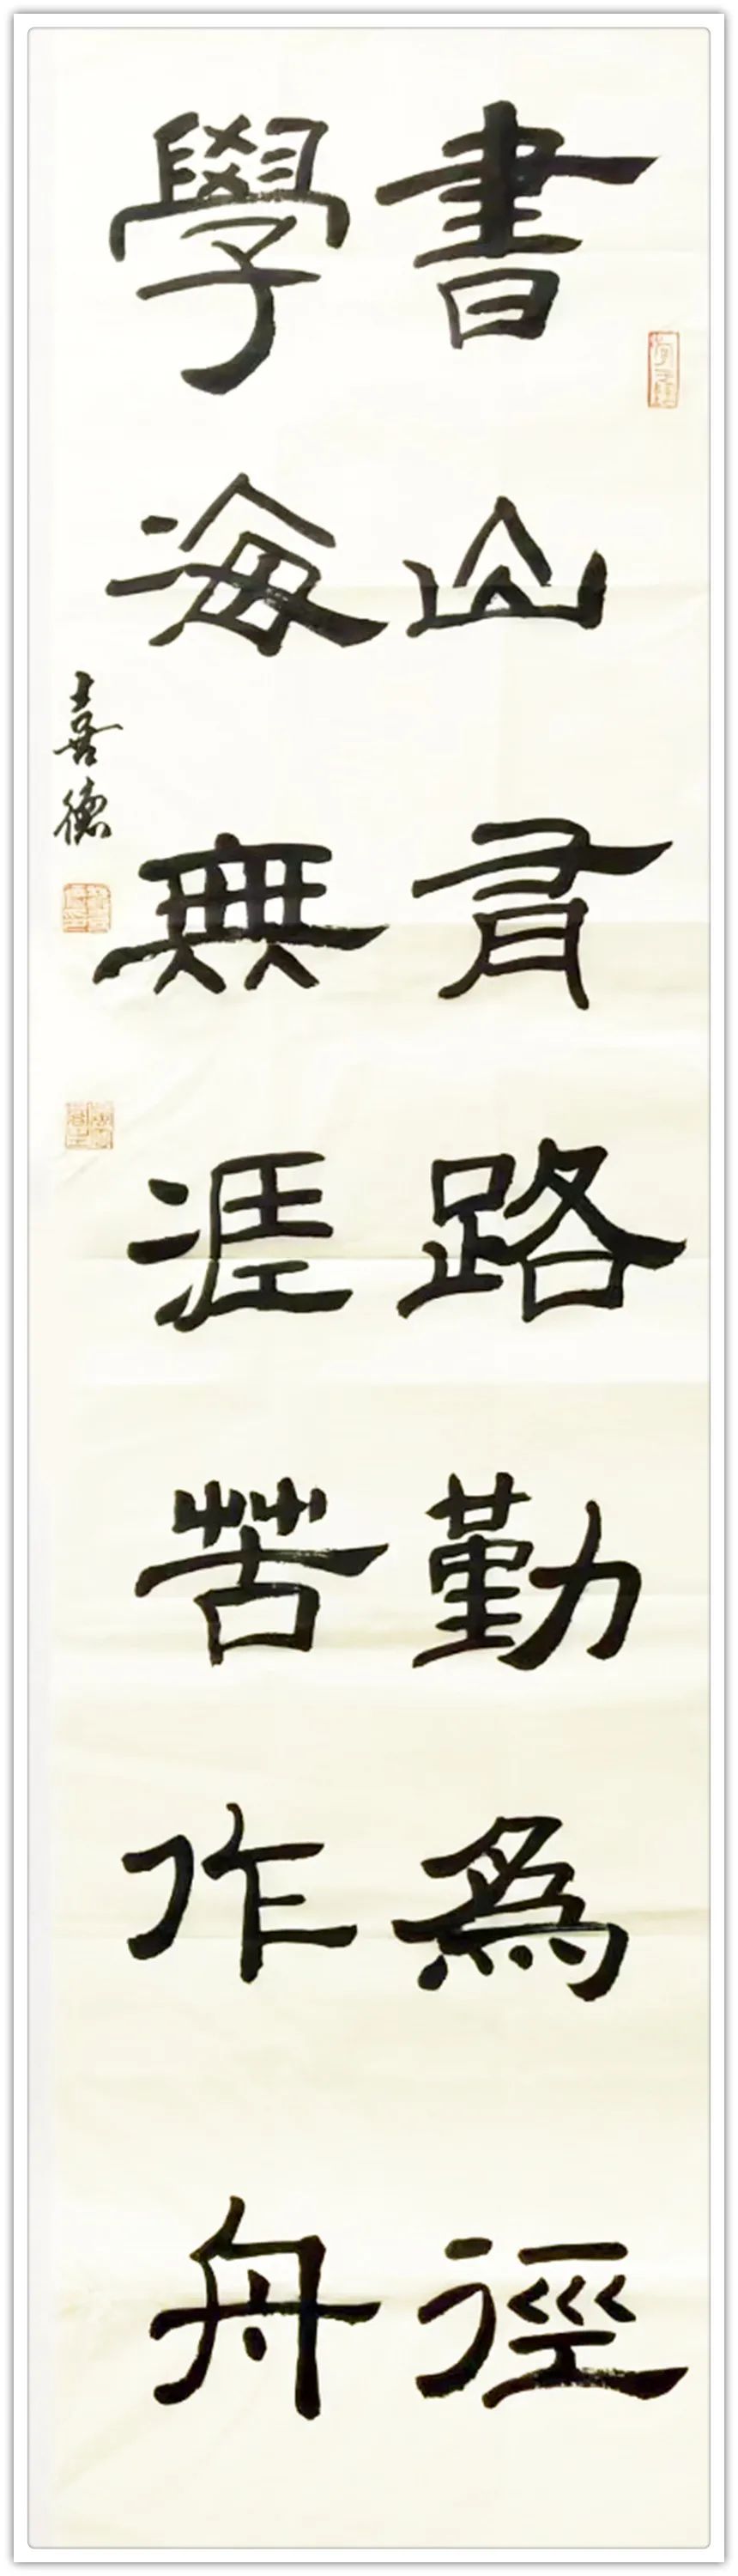 書山有路勤為徑
學海無涯苦作舟
喜德